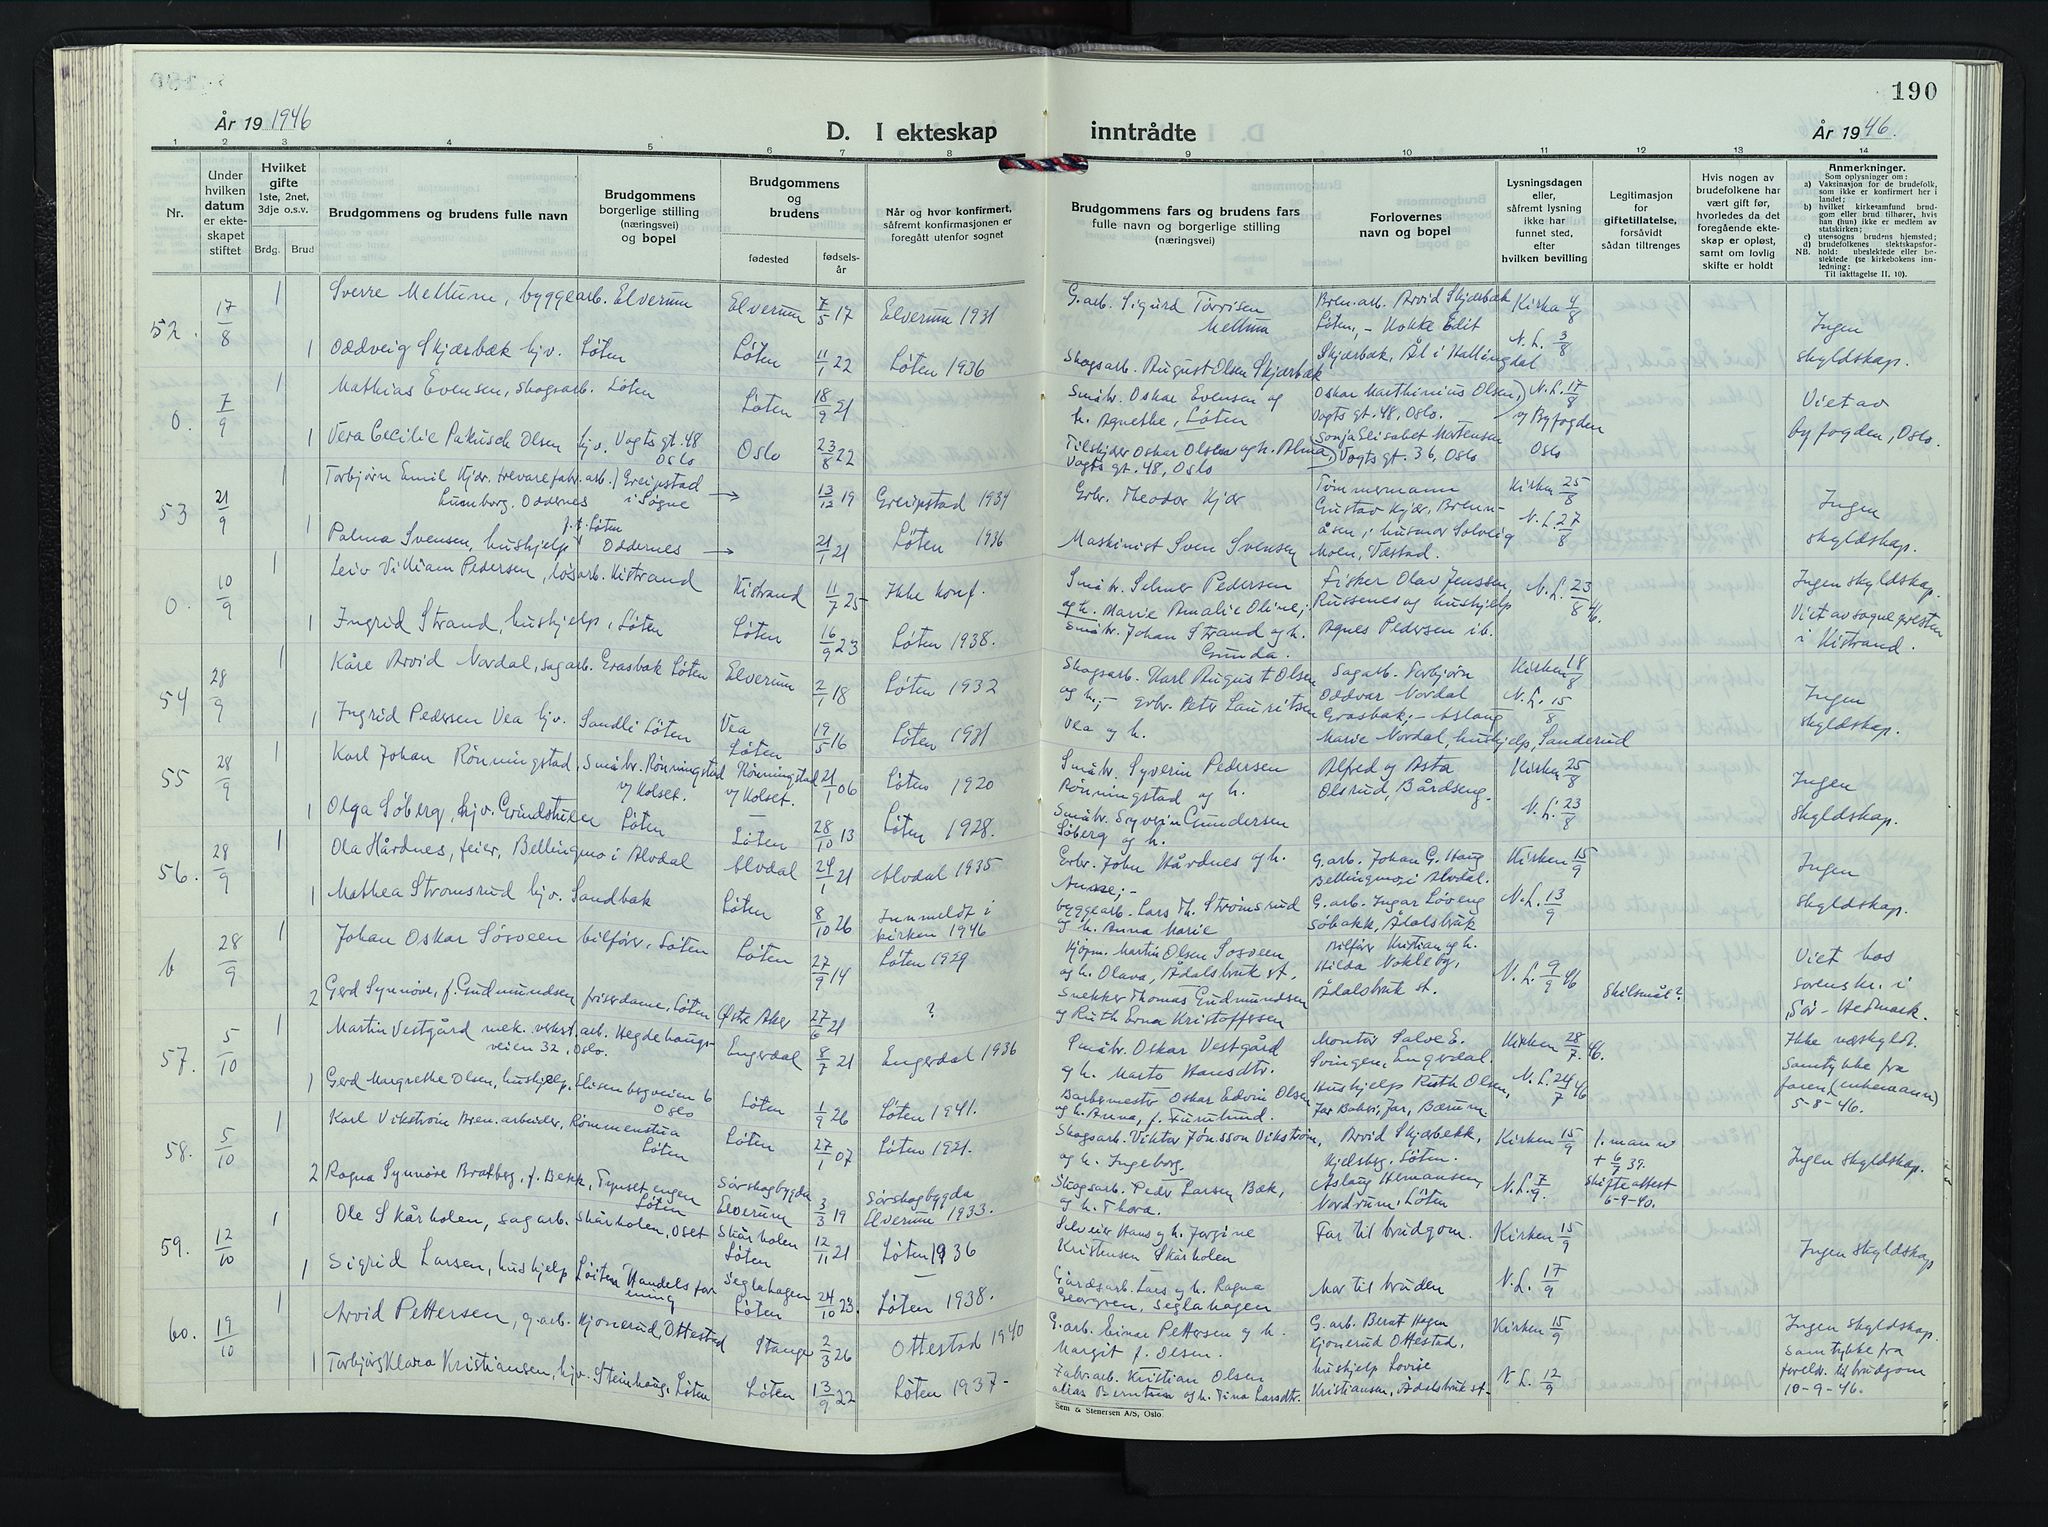 190
År 19 1946
D. I ekteskap inntrådte
År 19 46.
1 2 3 4 5 6 7 8 9 10 11 12 13 14
Nr.
Under hvilken datum er ekteskapet stiftet
Hvilket gifte 1ste, 2net, 3dje o.s.v.
Brdg. Brud
Brudgommens og brudens fulle navn
Brudgommens borgerlige stilling (næringsvei) og bopel
Brudgommens og brudens
fødested
fødselsår
Når og hvor konfirmert, såfremt konfirmasjonen er foregått utenfor sognet
Brudgommens fars og brudens fars fulle navn og borgerlige stilling (næringsvei)
Forlovernes navn og bopel
Lysningsdagen eller, såfremt lysning ikke har funnet sted, efter hvilken bevilling
Legitimasjon for giftetillatelse, forsåvidt sådan tiltrenges
Hvis nogen av brudefolkene har vært gift før, hvorledes da det foregående ekteskap er opløst, samt om lovlig skifte er holdt
Anmerkninger.
Som oplysninger om:
a) Vaksinasjon for de brudefolk, som ikke er konfirmert her i landet;
b) hvilket kirkesamfund brudgom eller brud tilhører, hvis han (hun) ikke er medlem av statskirken;
c) utensogns brudens hjemsted;
d) brudefolkenes slektskapsforhold: ubeslektede eller beslektede (se kirkebokens innledning;
NB. Til iakttagelse II. 10).
52. 17/8 1 Sverre Mettum, byggearb. Elverum Elverum 7/5 17 Elverum 1931 G.arb. Sigurd Torrisen Mettum Bren.arb. Arvid Skjærbæk Løten, - Kokke Edit Kirka 4/8 Ingen
1 Oddveig Skjærbæk hjv. Løten Løten 11/1 22 Løten 1936 Skogsarb. August Olsen Skjærbæk Skjærbæk, Ål i Hallingdal N.L. 3/8 skyldskap.
0. 7/9 1 Mathias Evensen, skogsarb. Løten Løten 18/9 21 Småbr. Oskar Evensen og h. Agnethe, Løten Oskar Marthinius Olsen, Vogts gt. 48, Oslo. N.L. 17/8 v/ Byfogden Viet av
1 Vera Cecilie Olsen hjv. Vogts gt. 48 Oslo Oslo 23/8 22 Oskar Olsen og h. Alma Vogts gt. 48, Oslo Sonja Elisabet Mortensen Vogts gt. 36, Oslo Oslo byfogden, Oslo.
53 21/9 1 Torbjørn Emil Kjær, trevarefabr.arb. Oddernes Greipstad i Søgne → 13/12 19 Greipstad 1934 Grbr. Theodor Kjær Tømmermann Gustav Kjær, Brennåsen, husmor Solveig Kirken 25/8 Ingen
1 Palma Svensen, hushjelp f.t. Løten Oddernes → 21/1 21 Løten 1936 Maskinist Sven Svensen Moen, Væstad. N.L. 27/8 skyldskap.
0. 10/9 1 Leiv Villiam Pedersen, løsarb. Kistrand Kistrand 11/7 25 Ikke konf. Småbr. Selmer Pedersen og h. Marie Amalie Oline; Fisker Olav Jenssen, Russenes og hushjelp N.L. 23/8 46. Ingen skyldskap.
1 Ingrid Strand, hushjelp, Løten Løten 16/9 23 Løten 1938. Småbr. Johan Strand og h. Gunda. Agnes Pedersen ib. Viet av sognepresten i Kistrand.
54 28/9 1 Kåre Arvid Nordal, sagarb. Grasbak Løten Elverum 2/1 18 Løten 1932 Skogsarb. Karl August Olsen og h.,- Sagarb. Torbjørn Oddvar Nordal Kirken 18/8 Ingen
1 Ingrid Pedersen Vea hjv. Sandli Løten Vea Løten 19/5 16 Løten 1931 grbr. Peter Lauritsen Vea og h. Grasbak; - Aslaug Marie Nordal, hushjelp, Sanderud N.L. 15/8 skyldskap.
55 28/9 1 Karl Johan Rønningstad, småbr. Rønningstad v/ Kolset. Rønningstad v/ Kolset. 21/1 06 Løten 1920 Småbr. Syverin Pedersen Rønningstad og h. Alfred og Asta Olsrud, Bårdseng. Kirken 25/8 Ingen
1 Olga Søberg, hjv. Grindstuen Løten Løten 28/10 13 Løten 1928. Småbr. Syverin Gundersen Søberg og h. N.L. 23/8 skyldskap.
56. 28/9 1 Ola Hårdnes, feier, Bellingmo i Alvdal Alvdal 24/1 21 Alvdal 1935 Grbr. John Hårdnes og h. Anne;- G.arb. Johan G. Haug Bellingmo, i Alvdal. Kirken 15/9 Ingen
1 Mathea Strømsrud hjv. Sandbak Løten 8/10 26 Innmeldt i kirken 1946 byggearb. Lars Th. Strømsrud og h. Anna Marie G.arb. Ingar Løveng Søbakk, Ådalsbruk N.L. 13/9 skyldskap.
b 28/9 1 Johan Oskar Sosveen bilfører, Løten Løten 27/9 14 Løten 1929 Kjøpm. Martin Olsen Sosveen og h. Olava, Ådalsbruk st. Bilfører Kristian og h. Hilda Nokleby, Ådalsbruk st. N.L. 9/9 46 Viet hos
2 Gerd Synnøve, f. Gudmundsen friserdame, Løten Østre Aker 27/6 21 ? Snekker Thomas Gudmundsen og Ruth Erna Kristoffersen Skilsmål? sorenskr. i Sør-Hedmark.
57. 5/10 1 Martin Vestgård mek. verkst.arb. Hegdehaugsveien 32, Oslo. Engerdal 8/7 21 Engerdal 1936 Småbr. Oskar Vestgård og h. Marte Hansdtr. Montør Salve E. Svingen, Engerdal. Kirken 28/7 46. Ikke næskyldt.
1 Gerd Margrethe Olsen, hushjelp, Elisenbergveien 6 Oslo Løten 1/9 26 Løten 1941. Barbermester Oskar Edvin Olsen og h. Anna, f. Furulund. Hushjelp Ruth Olsen, Jar, Bærum. N.L. 24/7 46 Samtykke fra faren (enkemann) 5-8-46.
58. 5/10 1 Karl Vikstrøm Bren.arbeider, Rømmenstua Løten Løten 27/1 07 Løten 1921. Skogsarb. Viktor Jönsson Vikstrøm, og h. Ingeborg. Arvid Skjærbekk, Kjelsberg, Løten. Kirken 15/9 1. mann + 6/7 39. Ingen skyldskap.
2 Ragna Synnøve Bratberg, f. Bekk, Tynsetengen Løten Sørskogbygda Elverum 3/3 19 Sørskogbygda Elverum 1933. Skogsarb. Peder Larsen Bæk, og h. Thora. Aslaug Hermansen, Nordrum, Løten N.L. 7/9. Skifteattest 6-9-40.
59. 12/10 1 Ole Skårholen, sagarb. Skårholen, Oset Skårholen Løten 12/11 21 Løten 1936 Selveier Hans og h. Jørgine Kristensen Skårholen Far til brudgom. Kirken 15/9 Ingen skyldskap
1 Sigrid Larsen, hushjelp Løiten Handelsforening Seglahagen Løten 24/10 23. Løten 1938. Gårdsarb. Lars og h. Ragna Georgsen, Seglahagen Mor til bruden N.L. 17/9
60. 19/10 1 Arvid Pettersen, g.arb. Kjonerud, Ottestad Stange 2/3 26 Ottestad 1940 G.arb. Einar Pettersen og h. Margit f. Olsen. G.arb. Bernt Hagen Kjonerud Ottestad, Kirken 15/9 Ingen skyldskap.
1 Torbjørg Klara Kristiansen, hjv. Steinhaug, Løten Løten 13/9 22 Løten 1937- Fabr.arb. Kristian Olsen alias Berntsen og h. Tina Larsdtr. hushjelp Lovise Kristiansen, Ådalsbruk st. N.L. 12/9 Samtykke fra foreld. til brudgom 10-9-46.
Sem & Stenersen A/S, Oslo.